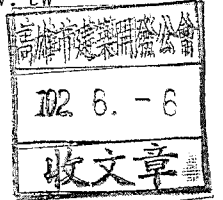 高雄市建築開發公會
102. 6. - 6
收文章